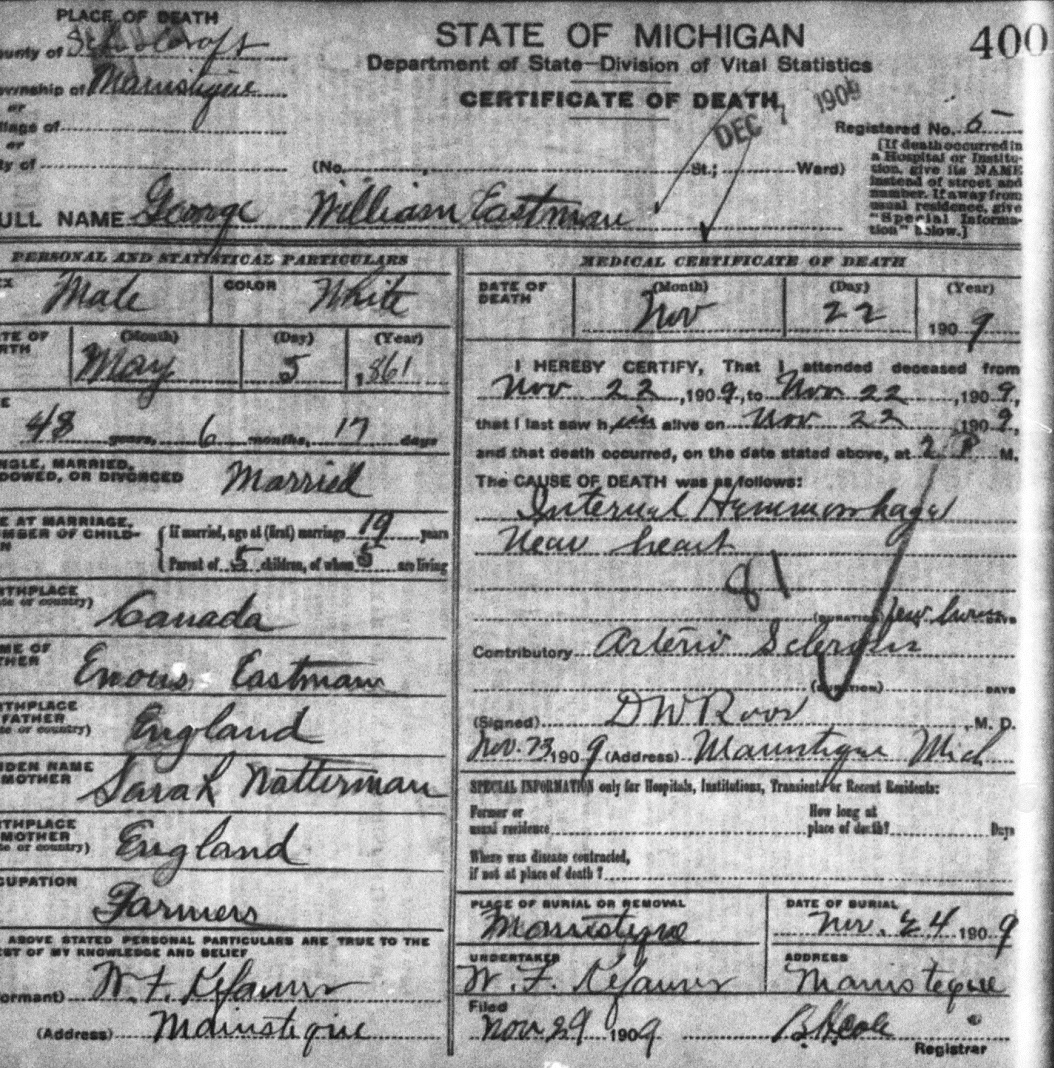 PLACE OF DEATH
ounty of Schoolcraft
ownship of Manistique
or
llage of
or
ty of
STATE OF MICHIGAN
Department of State—Division of Vital Statistics
CERTIFICATE OF DEATH
400
DEC 7 1909
Registered No. 5
(No. St.; Ward)
[If death occurred in
a Hospital or Institu-
tion, give its NAME
instead of street and
number. If away from
usual residence, give
"Special Informa-
tion" below.]
ULL NAME George William Eastman
PERSONAL AND STATISTICAL PARTICULARS
EX Male COLOR White
TE OF
RTH
(Month) (Day) (Year)
May 5 1861
E
48 years, 6 months, 17 days
NGLE, MARRIED,
DOWED, OR DIVORCED Married
E AT MARRIAGE,
MBER OF CHILD-
N
If married, age at (first) marriage 19 years
Parent of 5 children, of whom 5 are living
RTHPLACE
te or country) Canada
ME OF
THER Enous Eastman
RTHPLACE
FATHER
te or country) England
IDEN NAME
MOTHER Sarah Natterman
RTHPLACE
MOTHER
te or country) England
CUPATION
Farmers
ABOVE STATED PERSONAL PARTICULARS ARE TRUE TO THE
EST OF MY KNOWLEDGE AND BELIEF
ormant) W. F. Kefauver
(Address) Mainstique
MEDICAL CERTIFICATE OF DEATH
DATE OF
DEATH
(Month) (Day) (Year)
Nov 22 1909
I HEREBY CERTIFY, That I attended deceased from
Nov 22, 1909, to Nov 22, 1909,
that I last saw him alive on Nov 22 1909,
and that death occurred, on the date stated above, at 2 P M.
The CAUSE OF DEATH was as follows:
Internal Hemmorrhage
Near heart
81
(DURATION) few hours DAYS
Contributory Arterio Sclerosis
(DURATION) DAYS
(Signed) D W Roos, M. D.
Nov. 23, 1909 (Address) Manistique Mich
SPECIAL INFORMATION only for Hospitals, Institutions, Transients or Recent Residents:
Former or
usual residence
How long at
place of death? Days
Where was disease contracted,
if not at place of death?
PLACE OF BURIAL OR REMOVAL
Manistique
DATE OF BURIAL
Nov. 24 1909
UNDERTAKER
W. F. Kefauver
ADDRESS
Manistique
Filed
Nov 29 1909
Cole
Registrar